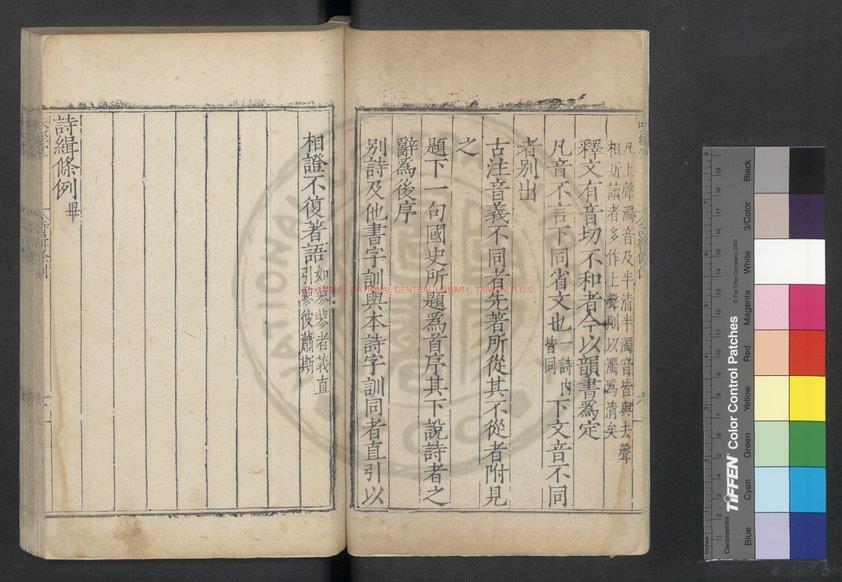 凡上聲濁音及半清半濁音皆與去聲
相近讀者多作上聲則以濁為清矣
釋文有音切不和者今以韻書為定
凡音不言下同省文也一詩内皆同下文音不同
者別出
古注音義不同者先著所從其不從者附見
之
題下一句國史所題爲首序其下說詩者之
辭為後序
别詩及他書字訓與本詩字訓同者直引以
相證不復著語如蓼蓼者莪直引蓼彼蕭斯
詩緝條例畢
NATIONAL CENTRAL LIBRARY, TAIWAN, R.O.C
TIFFEN Color Control Patches
© The Tiffen Company, 2007
Centimetres
Inches
Blue
Cyan
Green
Yellow
Red
Magenta
White
3/Color
Black